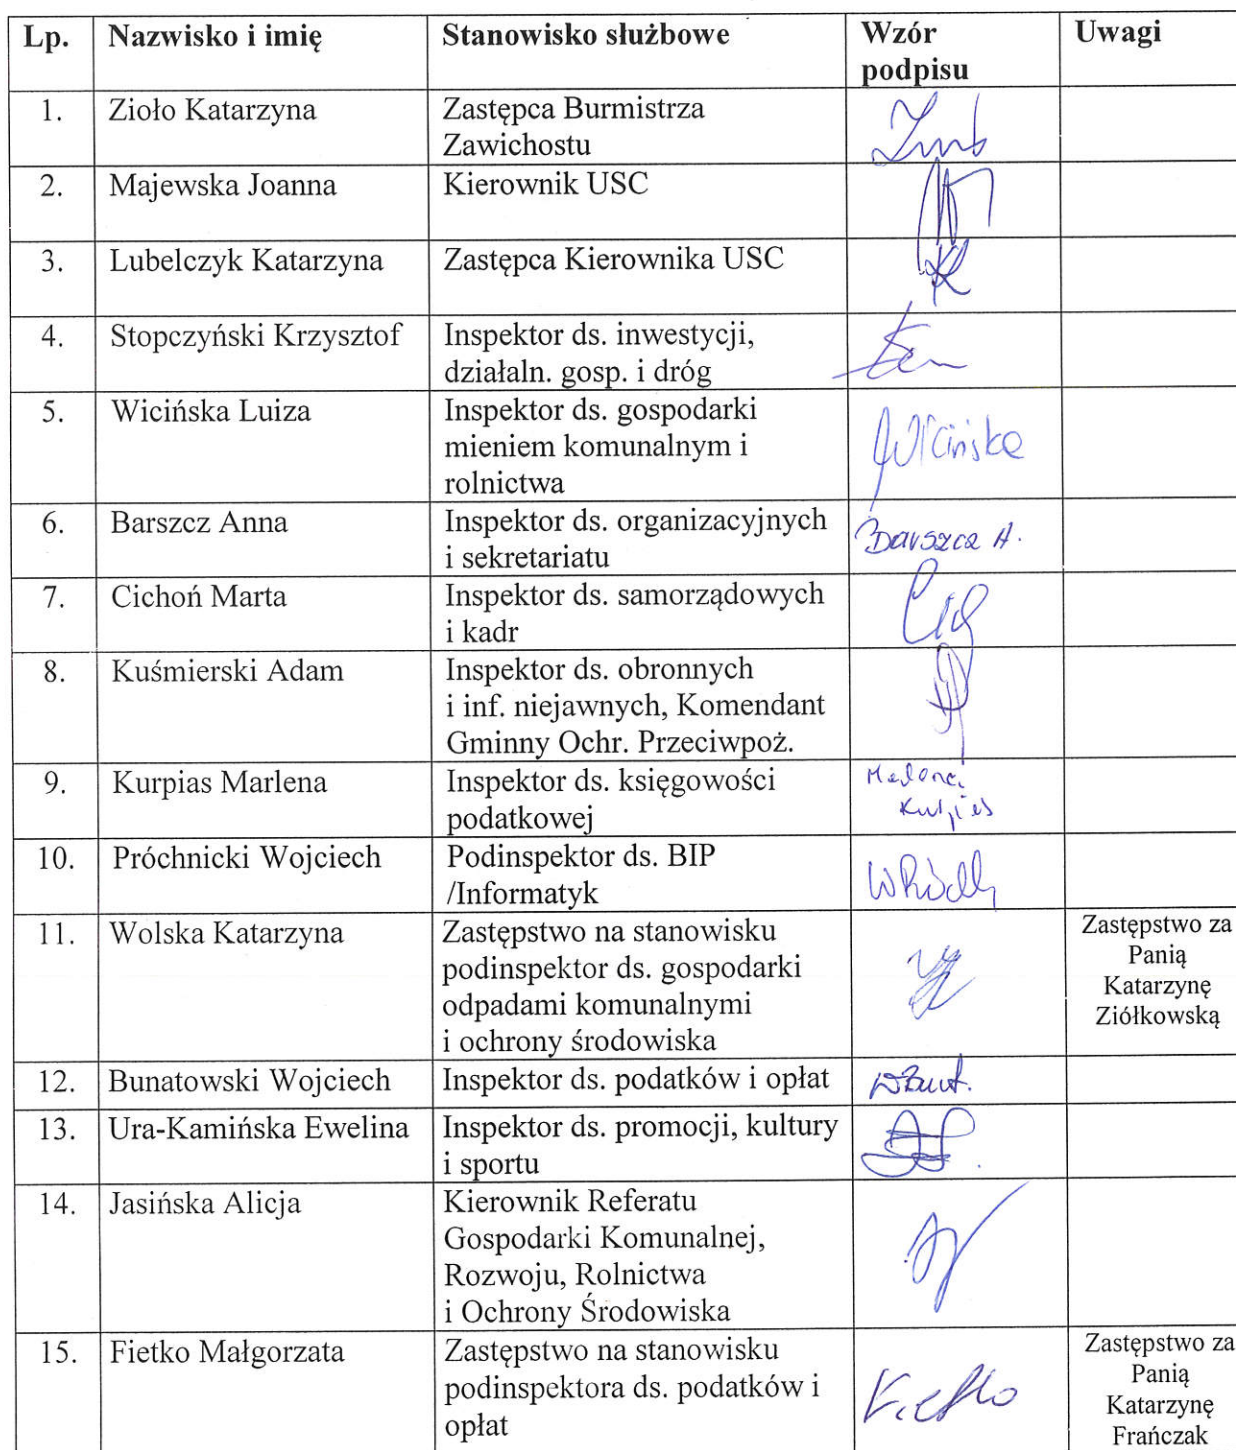 Lp. Nazwisko i imię Stanowisko służbowe Wzór Uwagi
podpisu
1. Zioło Katarzyna Zastępca Burmistrza
Zawichostu
2. Majewska Joanna Kierownik USC
3. Lubelczyk Katarzyna Zastępca Kierownika USC
4. Stopczyński Krzysztof Inspektor ds. inwestycji,
działaln. gosp. i dróg
5. Wicińska Luiza Inspektor ds. gospodarki
mieniem komunalnym i Wicińska
rolnictwa
6. Barszcz Anna Inspektor ds. organizacyjnych
i sekretariatu Barszcz A.
7. Cichoń Marta Inspektor ds. samorządowych
i kadr
8. Kuśmierski Adam Inspektor ds. obronnych
i inf. niejawnych, Komendant
Gminny Ochr. Przeciwpoż.
9. Kurpias Marlena Inspektor ds. księgowości Marlena
podatkowej Kurpias
10. Próchnicki Wojciech Podinspektor ds. BIP
/Informatyk
11. Wolska Katarzyna Zastępstwo na stanowisku Zastępstwo za
podinspektor ds. gospodarki Panią
odpadami komunalnymi Katarzynę
i ochrony środowiska Ziółkowską
12. Bunatowski Wojciech Inspektor ds. podatków i opłat
13. Ura-Kamińska Ewelina Inspektor ds. promocji, kultury
i sportu
14. Jasińska Alicja Kierownik Referatu
Gospodarki Komunalnej,
Rozwoju, Rolnictwa
i Ochrony Środowiska
15. Fietko Małgorzata Zastępstwo na stanowisku Zastępstwo za
podinspektora ds. podatków i Fietko Panią
opłat Katarzynę
Frańczak